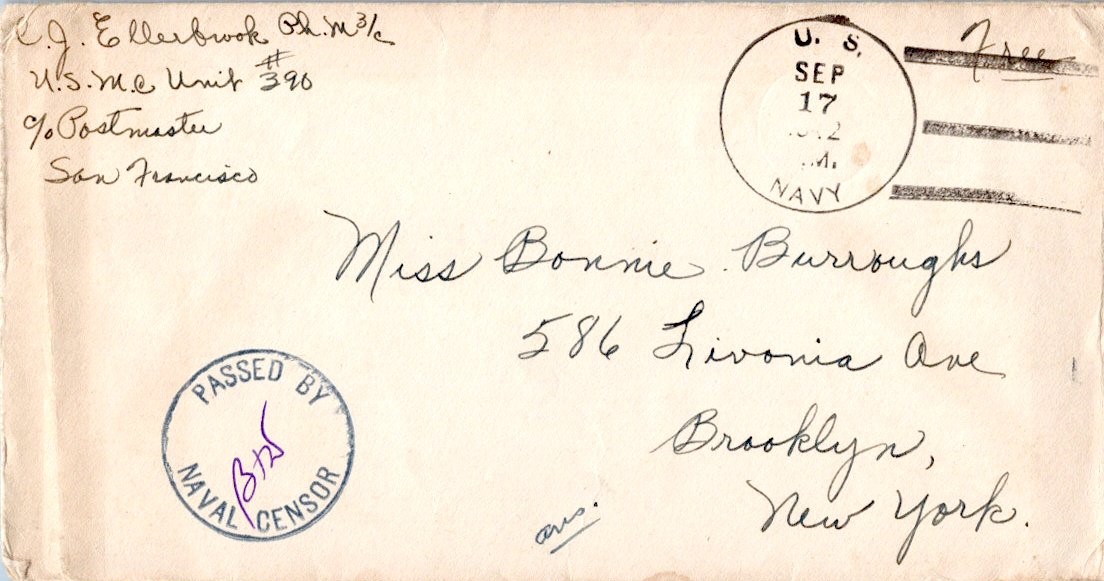 C. J. Ellerbrook Ph.M 3/c
U.S.M.C Unit #390
c/o Postmaster
San Francisco
U. S.
SEP
17
M.
NAVY
Free
Miss Bonnie Burroughs
586 Livonia Ave
Brooklyn,
New York.
PASSED BY
NAVAL CENSOR
ans.